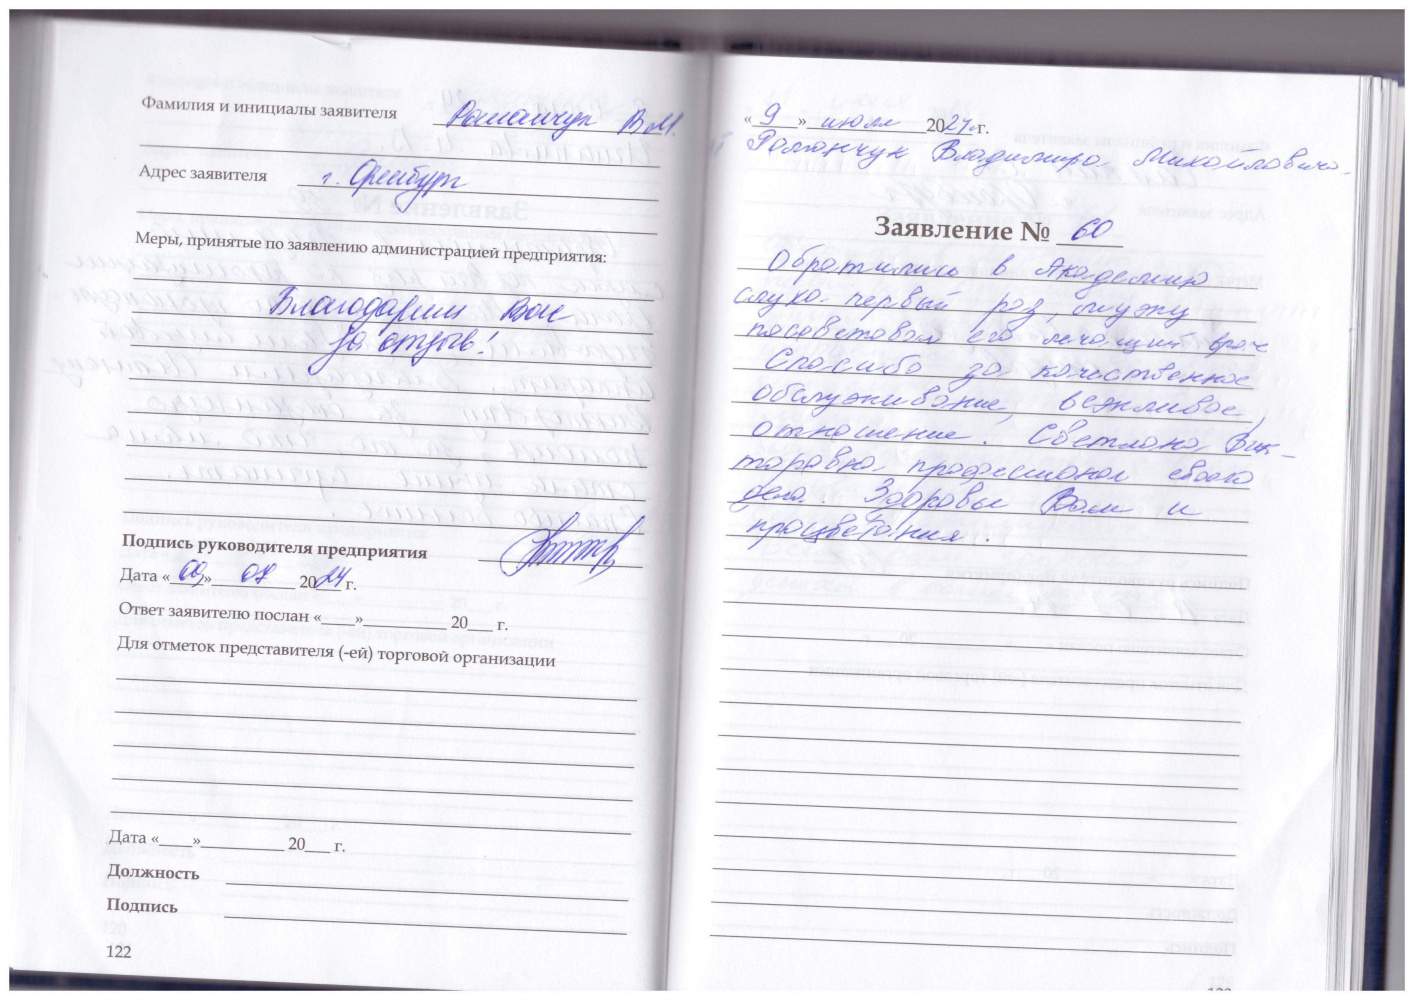 Фамилия и инициалы заявителя Романчук В.М.
Адрес заявителя г. Оренбург
Меры, принятые по заявлению администрацией предприятия:
Благодарим Вас
за отзыв!
Подпись руководителя предприятия
Дата «09» 07 2024 г.
Ответ заявителю послан «____»__________ 20___ г.
Для отметок представителя (-ей) торговой организации
Дата «____»__________ 20___ г.
Должность
Подпись
122
«9» июля 2024 г.
Романчук Владимира Михайловича.
Заявление № 60
Обратились в Академию
слуха первый раз, мужу
посоветовал его лечащий врач
Спасибо за качественное
обслуживание, вежливое
отношение. Светлана Вик-
торовна профессионал своего
дела. Здоровья Вам и
процветания.